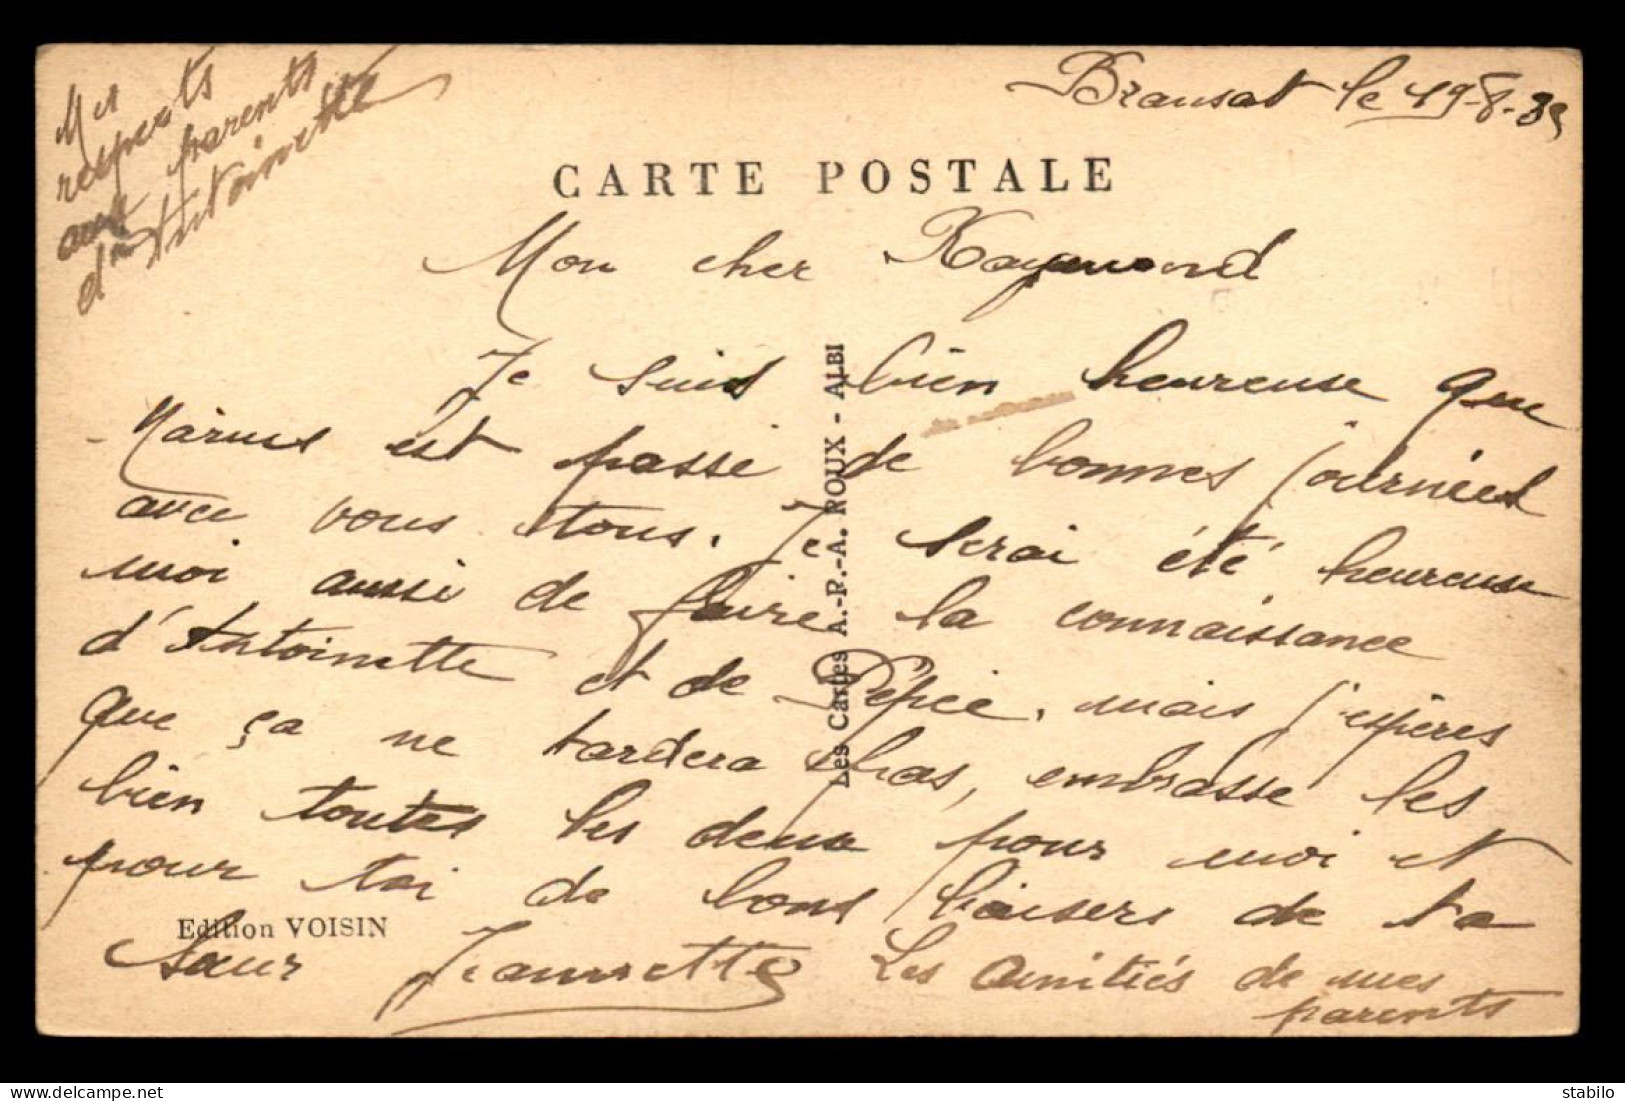 Mes
respects
aux parents
d'Antoinette
Bransat le 19-8-39
CARTE POSTALE
Mon cher Raymond
Je suis bien heureuse que
Marius est passé de bonnes journées
avec vous tous. Je serai été heureuse
moi aussi de faire la connaissance
d'Antoinette et de Pépée. mais j'espères
que ça ne tardera pas, embrasse les
bien toutes les deux pour moi et
pour toi de bons baisers de ta
sœur Jeannette
Les amitiés de mes
parents
Edition VOISIN
Les Cartes A.-P.-A. ROUX - ALBI
stabilo